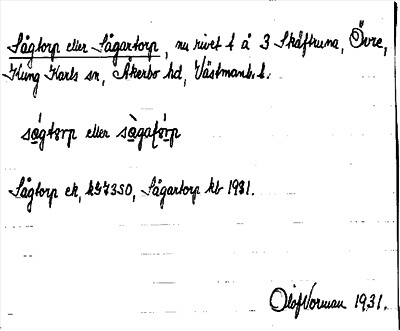 Sågtorp eller Sågartorp, nu rivet t å 3 Skåftruna, Övre,
Kung Karls sn, Åkerbo hd, Västmanl. l.
sågtorp eller sågatorp
Sågtorp ek, Sågartorp kb 1931.
Olof Norman 1931.